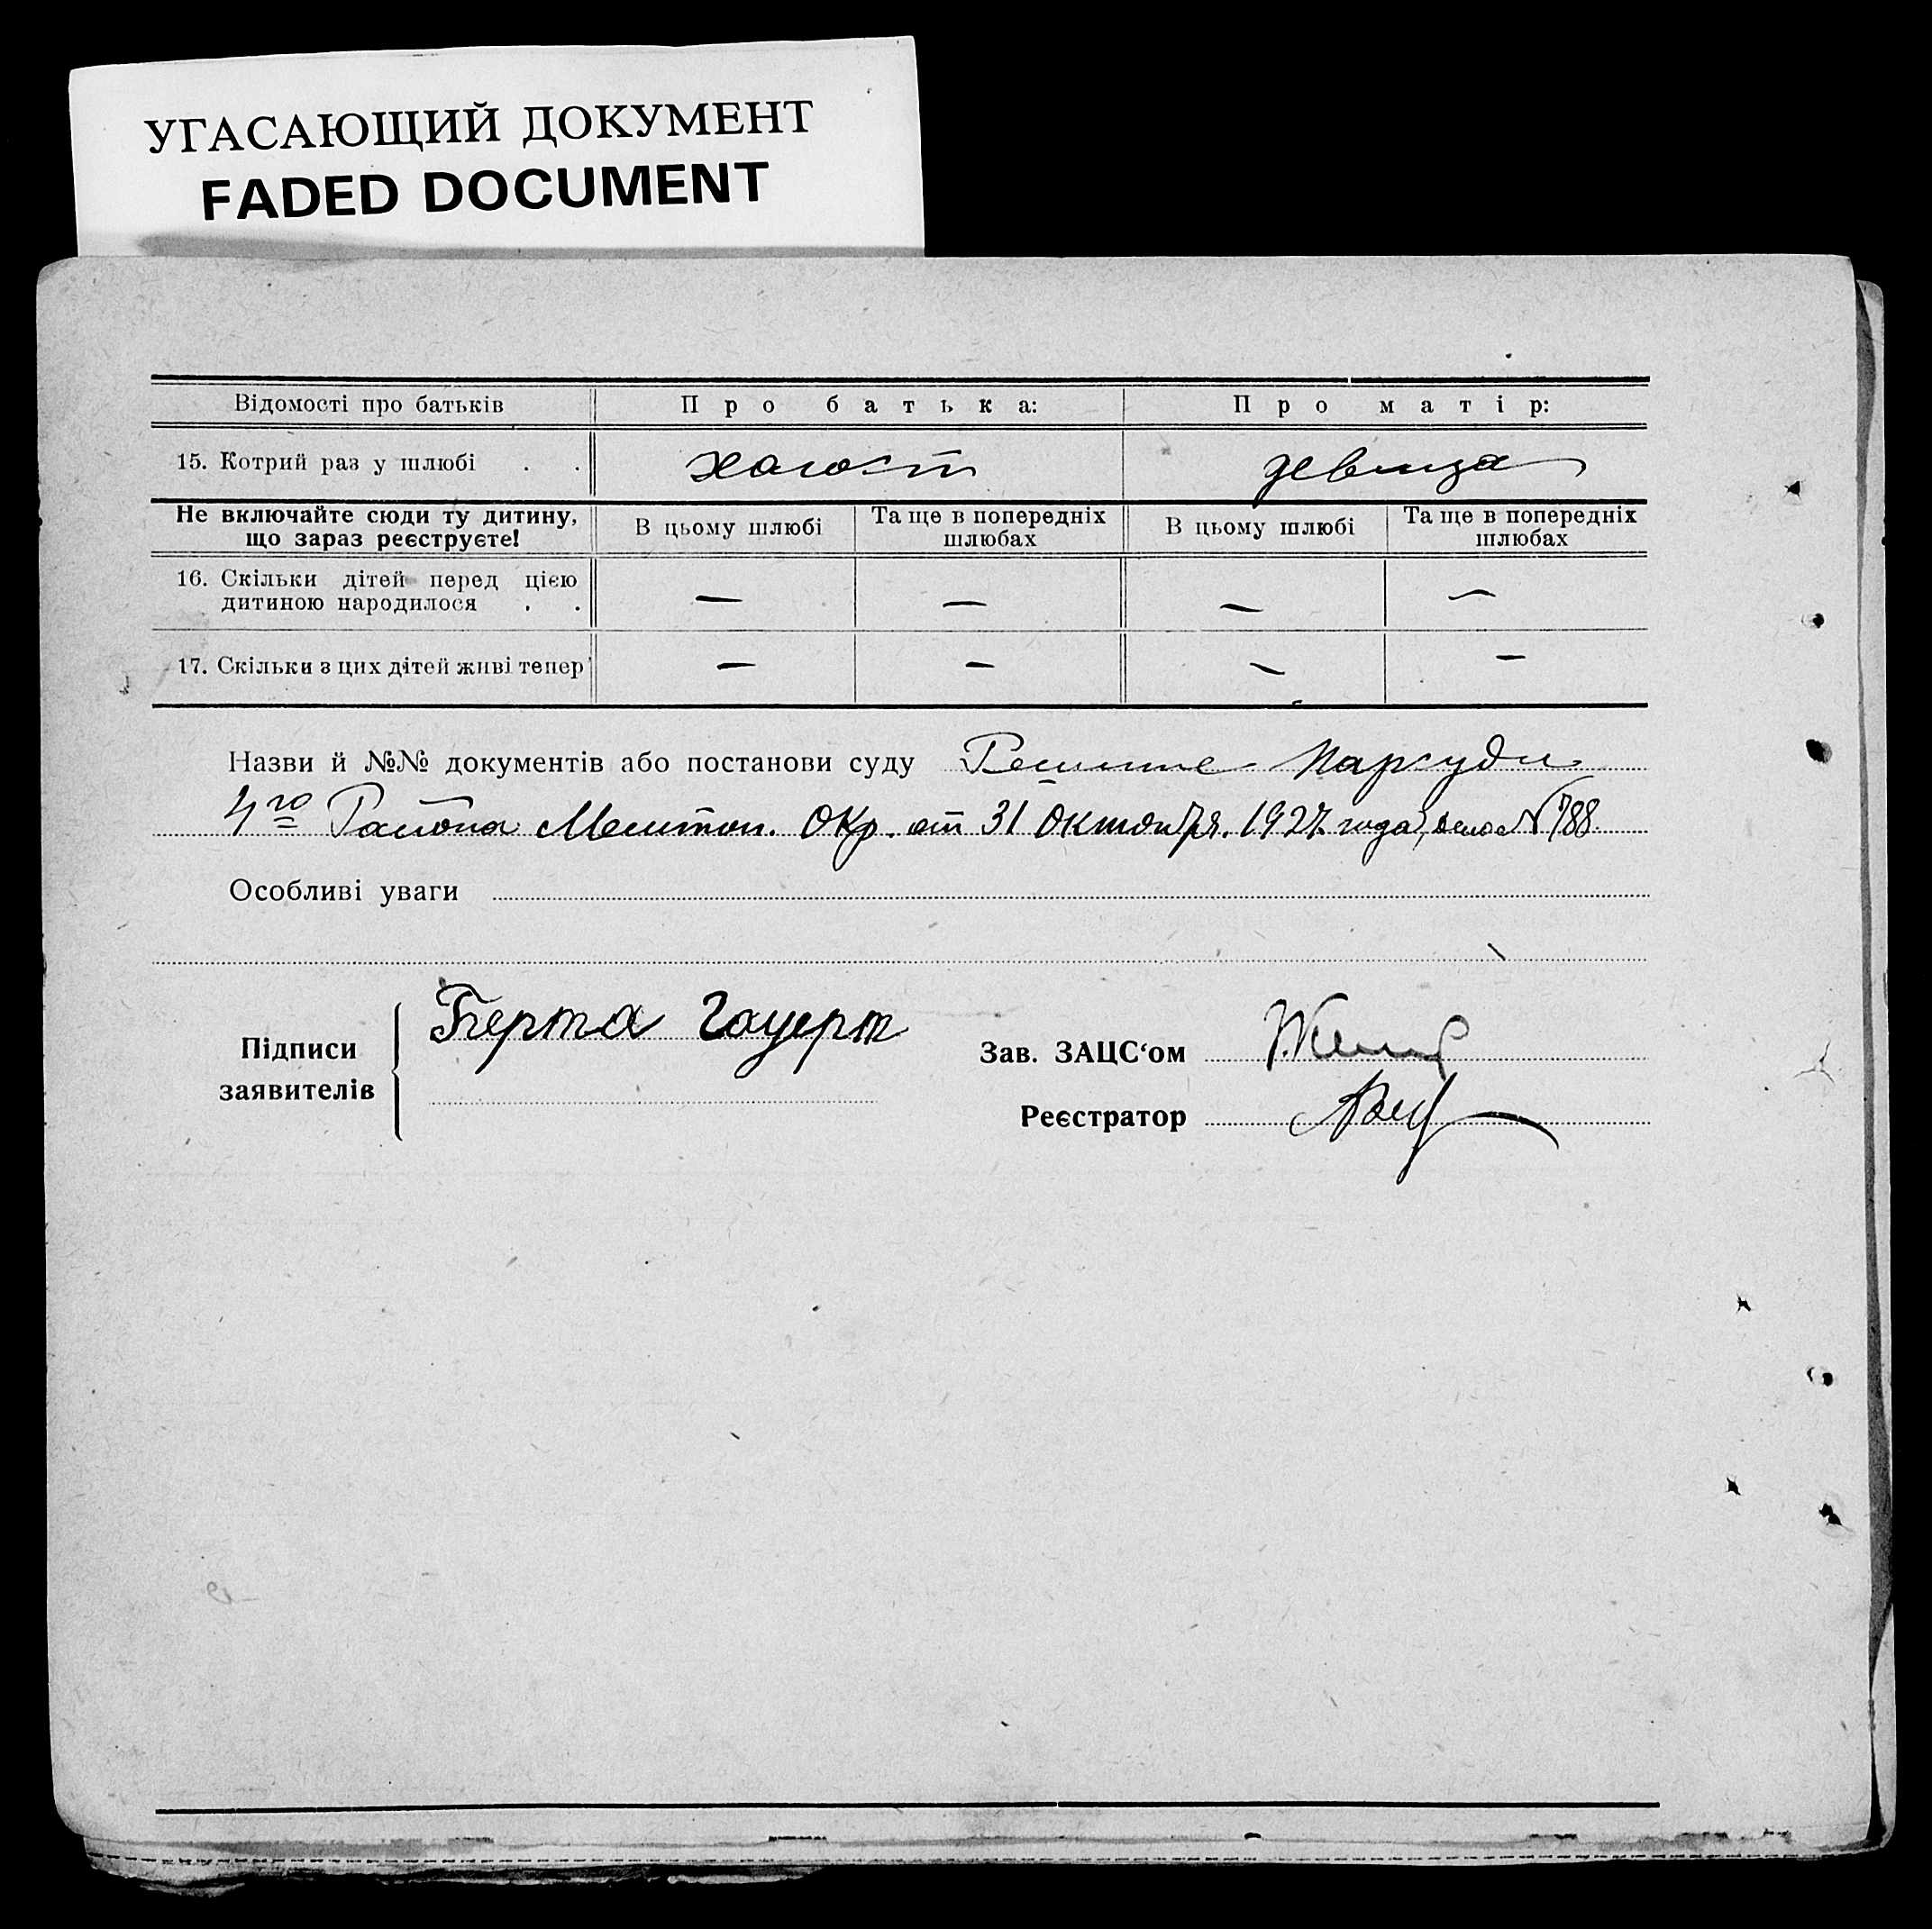 УГАСАЮЩИЙ ДОКУМЕНТ
FADED DOCUMENT
Відомості про батьків Про батька: Про матір:
15. Котрий раз у шлюбі . . холост девица
Не включайте сюди ту дитину, що зараз реєструєте! В цьому шлюбі Та ще в попередніх шлюбах В цьому шлюбі Та ще в попередніх шлюбах
16. Скільки дітей перед цією
дитиною народилося . . — — — —
17. Скільки з цих дітей живі тепер — — — —
Назви й №№ документів або постанови суду Решение Нарсуда
4го Района Мелитоп. Окр. от 31 Октября. 1927. года, дело № 788.
Особливі уваги
Підписи заявителів Берта Гауерт
Зав. ЗАЦС‘ом
Реєстратор